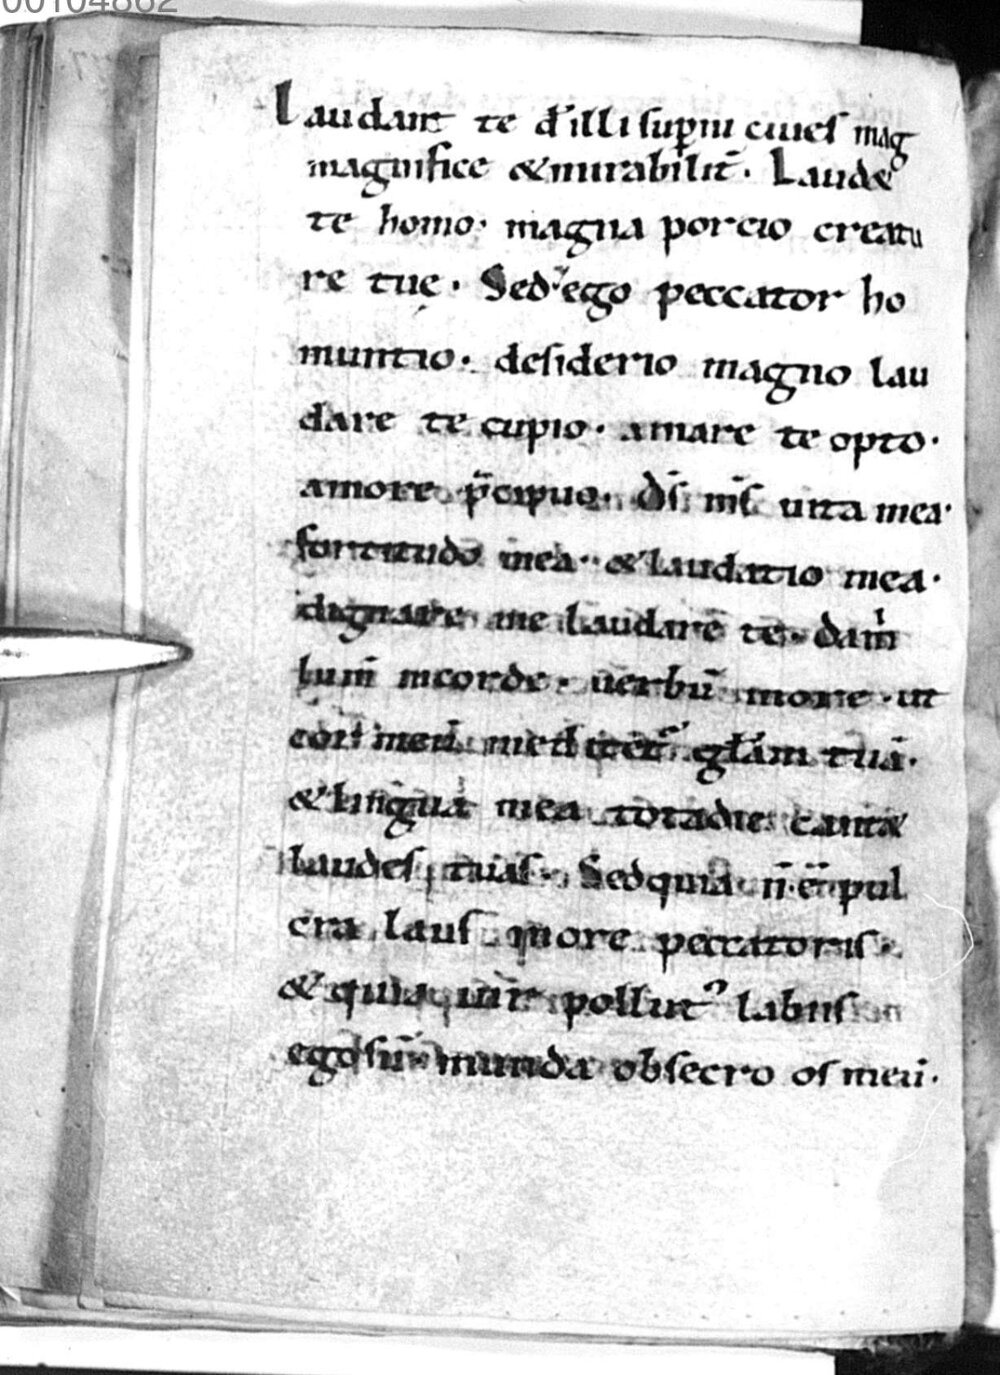 00104862
Laudant te dˢ illi sup̱ni ciues mag
magnifice & mirabilit̄. Laud&
te homo. magna porcio creatu
re tuę. Sed & ego peccator ho
muntio. desiderio magno lau
dare te cupio. amare te opto.
amore p̄cipuo. dſ̄ mſ̄ uita mea.
fortitudo mea. & laudatio mea.
dignare me laudare te. da m̄
lum̄ in corde. uerbū in ore. ut
cor meū meditet᷑ gl̄am tuā.
& lingua mea tota die cant&
laudes tuas. Sed quia n̄ ē pul
cra laus in ore peccatoris.
& quia uir pollut᷒ labiis
ego sū. munda obsecro os meū.